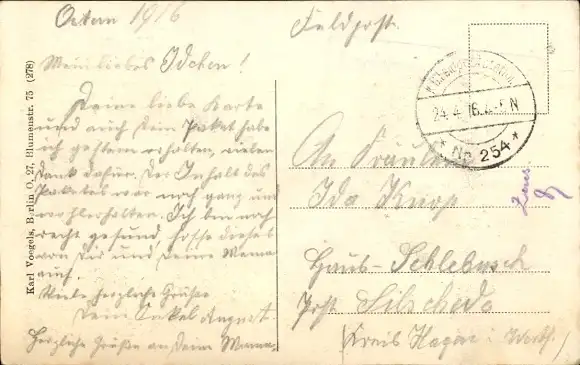 Ostern 1916
Mein liebes Idchen!
Deine liebe Karte
und auch Dein Paket habe
ich gestern erhalten, vielen
Dank dafür. Der Inhalt des
Paketes war noch ganz und
wohlerhalten. Ich bin noch
recht gesund, hoffe dieses
von Dir und Deine Mama
auch.
Viele herzliche Grüße
Dein Onkel August
Herzliche Grüße an Deine Mama.
Karl Voegels, Berlin O. 27, Blumenstr. 75 (278)
Feldpost.
24.4.16.
* No 254 *
An Fräulein
Ida Knop
Haus- Schlebusch
Post Silschede
(Kreis Hagen i. Westf.)